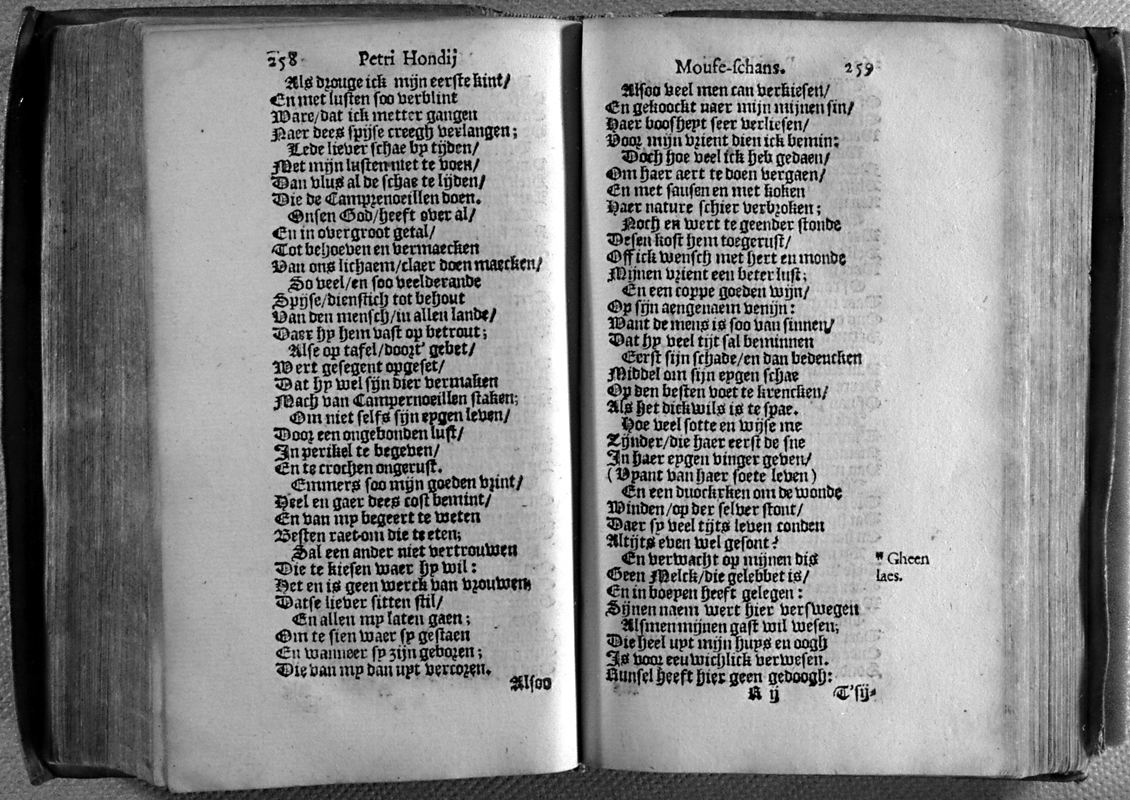 258 Petri Hondij
Als drouge ick mijn eerste kint/
En met lusten soo verblint
Ware/dat ick metter gangen
Naer dees spijse creegh verlangen;
Lede liever schae by tijden/
Met mijn lusten niet te voen/
Dan vlus al de schae te lijden/
Die de Camprenoeillen doen.
Onsen God/heeft over al/
En in overgroot getal/
Tot behoeven en vermaecken
Van ons lichaem/claer doen maecken/
So veel/en soo veelderande
Spijse/dienstich tot behout
Van den mensch/in allen lande/
Daer hy hem vast op betrout;
Alse op tafel/doort' gebet/
Wert gesegent opgeset/
Dat hy wel sijn dier vermaken
Mach van Campernoeillen staken;
Om niet selfs sijn eygen leven/
Door een ongebonden lust/
In perikel te begeven/
En te crochen ongerust.
Emmers soo mijn goeden vrint/
Heel en gaer dees cost bemint/
En van my begeert te weten
Besten raet om die te eten;
Sal een ander niet vertrouwen
Die te kiesen waer hy wil:
Het en is geen werck van vrouwen
Datse liever sitten stil/
En allen my laten gaen;
Om te sien waer sy gestaen
En wanneer sy zijn geboren;
Die van my dan uyt vercoren.
Alsoo
Mouse-schans. 259
Alsoo veel men can verkiesen/
En gekoockt naer mijn mijnen sin/
Haer boosheyt seer verliesen/
Voor mijn vrient dien ick bemin:
Doch hoe veel ick heb gedaen/
Om haer aert te doen vergaen/
En met sausen en met koken
Haer nature schier verbroken;
Noch en wert te geender stonde
Desen kost hem toegerust/
Off ick wensch met hert en monde
Mijnen vrient een beter lust;
En een coppe goeden wijn/
Op sijn aengenaem venijn:
Want de mens is soo van sinnen/
Dat hy veel tijt sal beminnen
Eerst sijn schade/en dan bedencken
Middel om sijn eygen schae
Op den besten voet te krencken/
Als het dickwils is te spae.
Hoe veel sotte en wijse me
Zijnder/die haer eerst de sne
In haer eygen vinger geven/
(Vyant van haer soete leven)
En een duockrken om de wonde
Winden/op der selver stont/
Daer sy veel tijts leven conden
Altijts even wel gesont?
En verwacht op mijnen dis
" Gheen
Geen Melck/die gelebbet is/
laes.
En in boeyen heeft gelegen:
Sijnen naem wert hier verswegen
Alsmen mijnen gast wil wesen;
Die heel uyt mijn huys en oogh
Is voor eeuwichlick verwesen.
Runsel heeft hier geen gedoogh:
R ij T'sij-